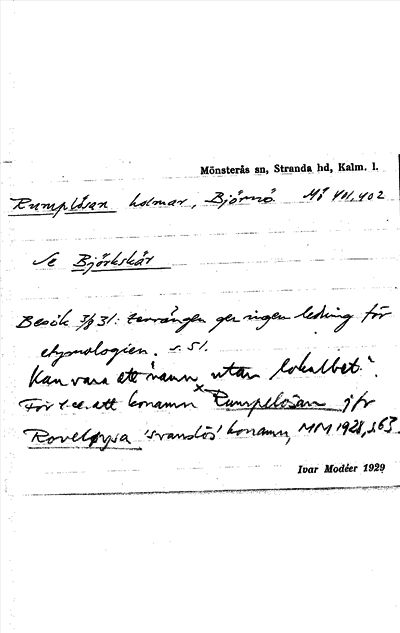 Mönsterås sn, Stranda hd, Kalm. l.
Rumplösan holmar, Björnö. Mö 401, 402
Se Björkskär
Besök 7/8 31: terrängen ger ingen ledning för
etymologien. s. 51.
Kan vara ett namn utan lokalbet.
För t. ex. att konamn Rumpelösan jfr
Roveløysa 'svanslös' konamn, MM 1928, s. 63.
Ivar Modéer 1929